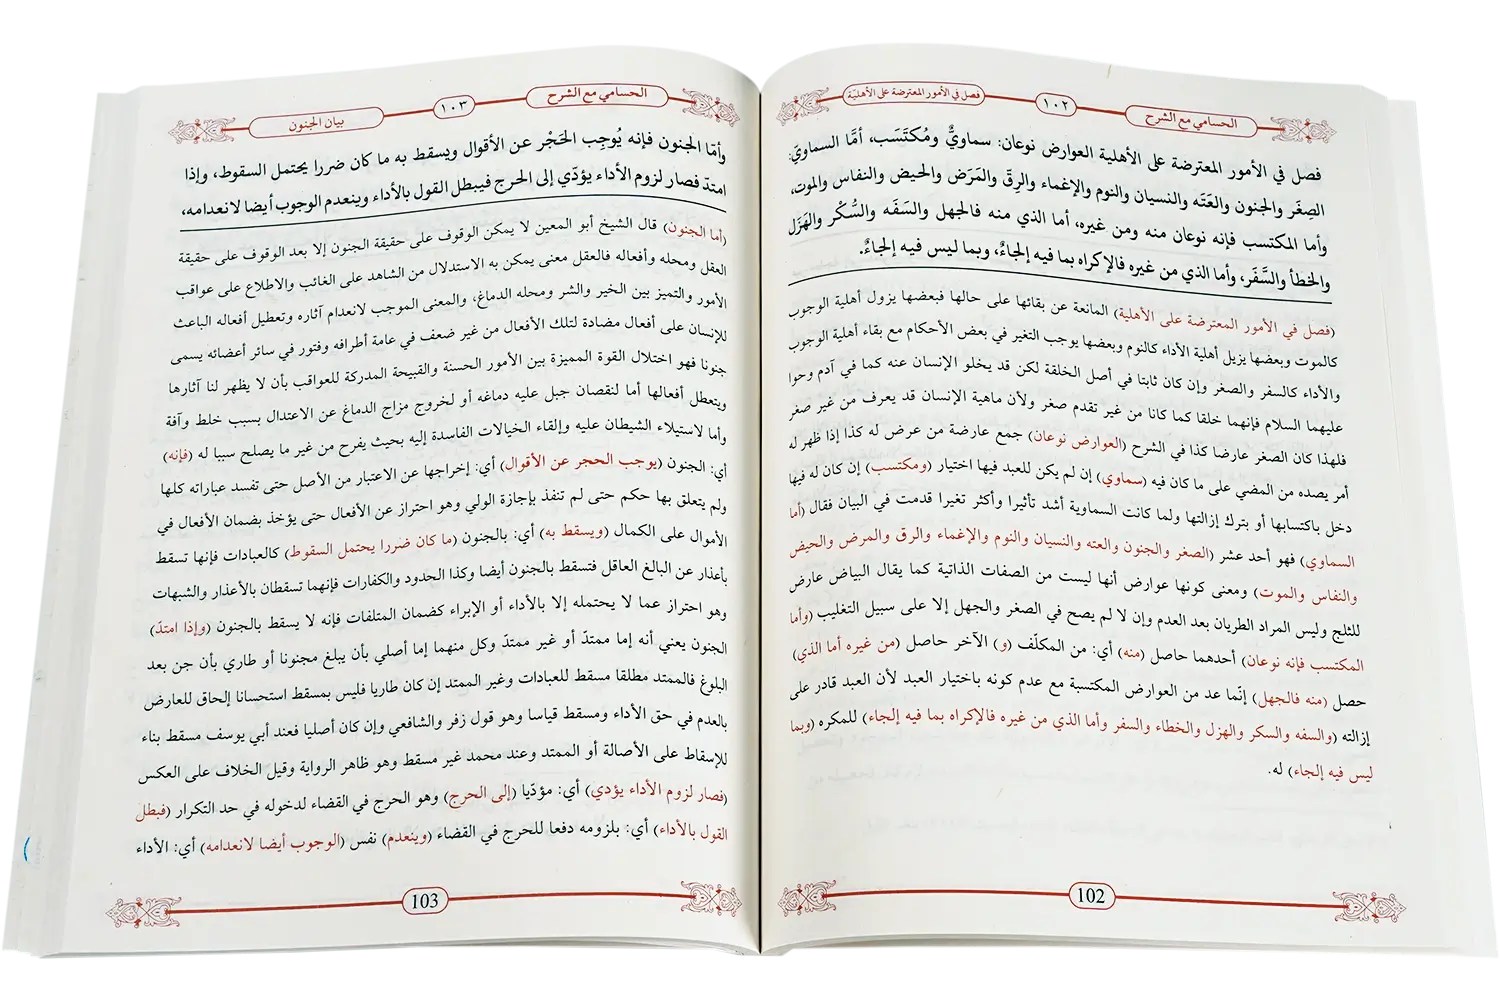 الحسامي مع الشرح
١٠٢
فصل في الأمور المعترضة على الأهلية
فصل في الأمور المعترضة على الأهلية العوارض نوعان: سماويٌّ ومُكتَسَب، أمَّا السماويّ:
الصِغَر والجنون والعَتَه والنسيان والنوم والإغماء والرِقّ والمَرَض والحيض والنفاس والموت،
وأما المكتسب فإنه نوعان منه ومن غيره، أما الذي منه فالجهل والسَفَه والسُّكْر والهَزَل
والخطأ والسَّفَر، وأما الذي من غيره فالإكراه بما فيه إلجاءٌ، وبما ليس فيه إلجاءٌ.
(فصل في الأمور المعترضة على الأهلية) المانعة عن بقائها على حالها فبعضها يزول أهلية الوجوب
كالموت وبعضها يزيل أهلية الأداء كالنوم وبعضها يوجب التغير في بعض الأحكام مع بقاء أهلية الوجوب
والأداء كالسفر والصغر وإن كان ثابتا في أصل الخلقة لكن قد يخلو الإنسان عنه كما في آدم وحوا
عليهما السلام فإنهما خلقا كما كانا من غير تقدم صغر ولأن ماهية الإنسان قد يعرف من غير صغر
فلهذا كان الصغر عارضا كذا في الشرح (العوارض نوعان) جمع عارضة من عرض له كذا إذا ظهر له
أمر يصده من المضي على ما كان فيه (سماوي) إن لم يكن للعبد فيها اختيار (ومكتسب) إن كان له فيها
دخل باكتسابها أو بترك إزالتها ولما كانت السماوية أشد تأثيرا وأكثر تغيرا قدمت في البيان فقال (أما
السماوي) فهو أحد عشر (الصغر والجنون والعته والنسيان والنوم والإغماء والرق والمرض والحيض
والنفاس والموت) ومعنى كونها عوارض أنها ليست من الصفات الذاتية كما يقال البياض عارض
للثلج وليس المراد الطريان بعد العدم وإن لا لم يصح في الصغر والجهل إلا على سبيل التغليب (وأما
المكتسب فإنه نوعان) أحدهما حاصل (منه) أي: من المكلّف (و) الآخر حاصل (من غيره أما الذي)
حصل (منه فالجهل) إنّما عد من العوارض المكتسبة مع عدم كونه باختيار العبد لأن العبد قادر على
إزالته (والسفه والسكر والهزل والخطاء والسفر وأما الذي من غيره فالإكراه بما فيه إلجاء) للمكره (وبما
ليس فيه إلجاء) له.
102
الحسامي مع الشرح
١٠٣
بيان الجنون
وأمّا الجنون فإنه يُوجِب الحَجْر عن الأقوال ويسقط به ما كان ضررا يحتمل السقوط، وإذا
امتدّ فصار لزوم الأداء يؤدّي إلى الحرج فيبطل القول بالأداء وينعدم الوجوب أيضا لانعدامه،
(أما الجنون) قال الشيخ أبو المعين لا يمكن الوقوف على حقيقة الجنون إلا بعد الوقوف على حقيقة
العقل ومحله وأفعاله فالعقل معنى يمكن به الاستدلال من الشاهد على الغائب والاطلاع على عواقب
الأمور والتميز بين الخير والشر ومحله الدماغ، والمعنى الموجب لانعدام آثاره وتعطيل أفعاله الباعث
للإنسان على أفعال مضادة لتلك الأفعال من غير ضعف في عامة أطرافه وفتور في سائر أعضائه يسمى
جنونا فهو اختلال القوة المميزة بين الأمور الحسنة والقبيحة المدركة للعواقب بأن لا يظهر لنا آثارها
ويتعطل أفعالها أما لنقصان جبل عليه دماغه أو لخروج مزاج الدماغ عن الاعتدال بسبب خلط وآفة
وأما لاستيلاء الشيطان عليه وإلقاء الخيالات الفاسدة إليه بحيث يفرح من غير ما يصلح سببا له (فإنه)
أي: الجنون (يوجب الحجر عن الأقوال) أي: إخراجها عن الاعتبار من الأصل حتى تفسد عباراته كلها
ولم يتعلق بها حكم حتى لم تنفذ بإجازة الولي وهو احتراز عن الأفعال حتى يؤخذ بضمان الأفعال في
الأموال على الكمال (ويسقط به) أي: بالجنون (ما كان ضررا يحتمل السقوط) كالعبادات فإنها تسقط
بأعذار عن البالغ العاقل فتسقط بالجنون أيضا وكذا الحدود والكفارات فإنهما تسقطان بالأعذار والشبهات
وهو احتراز عما لا يحتمله إلا بالأداء أو الإبراء كضمان المتلفات فإنه لا يسقط بالجنون (وإذا امتدّ)
الجنون يعني أنه إما ممتدّ أو غير ممتدّ وكل منهما إما أصلي بأن يبلغ مجنونا أو طاري بأن جن بعد
البلوغ فالممتد مطلقا مسقط للعبادات وغير الممتد إن كان طاريا فليس بمسقط استحسانا إلحاق للعارض
بالعدم في حق الأداء ومسقط قياسا وهو قول زفر والشافعي وإن كان أصليا فعند أبي يوسف مسقط بناء
للإسقاط على الأصالة أو الممتد وعند محمد غير مسقط وهو ظاهر الرواية وقيل الخلاف على العكس
(فصار لزوم الأداء يؤدي) أي: مؤدّيا (إلى الحرج) وهو الحرج في القضاء لدخوله في حد التكرار (فبطل
القول بالأداء) أي: بلزومه دفعا للحرج في القضاء (وينعدم) نفس (الوجوب أيضا لانعدامه) أي: الأداء
103